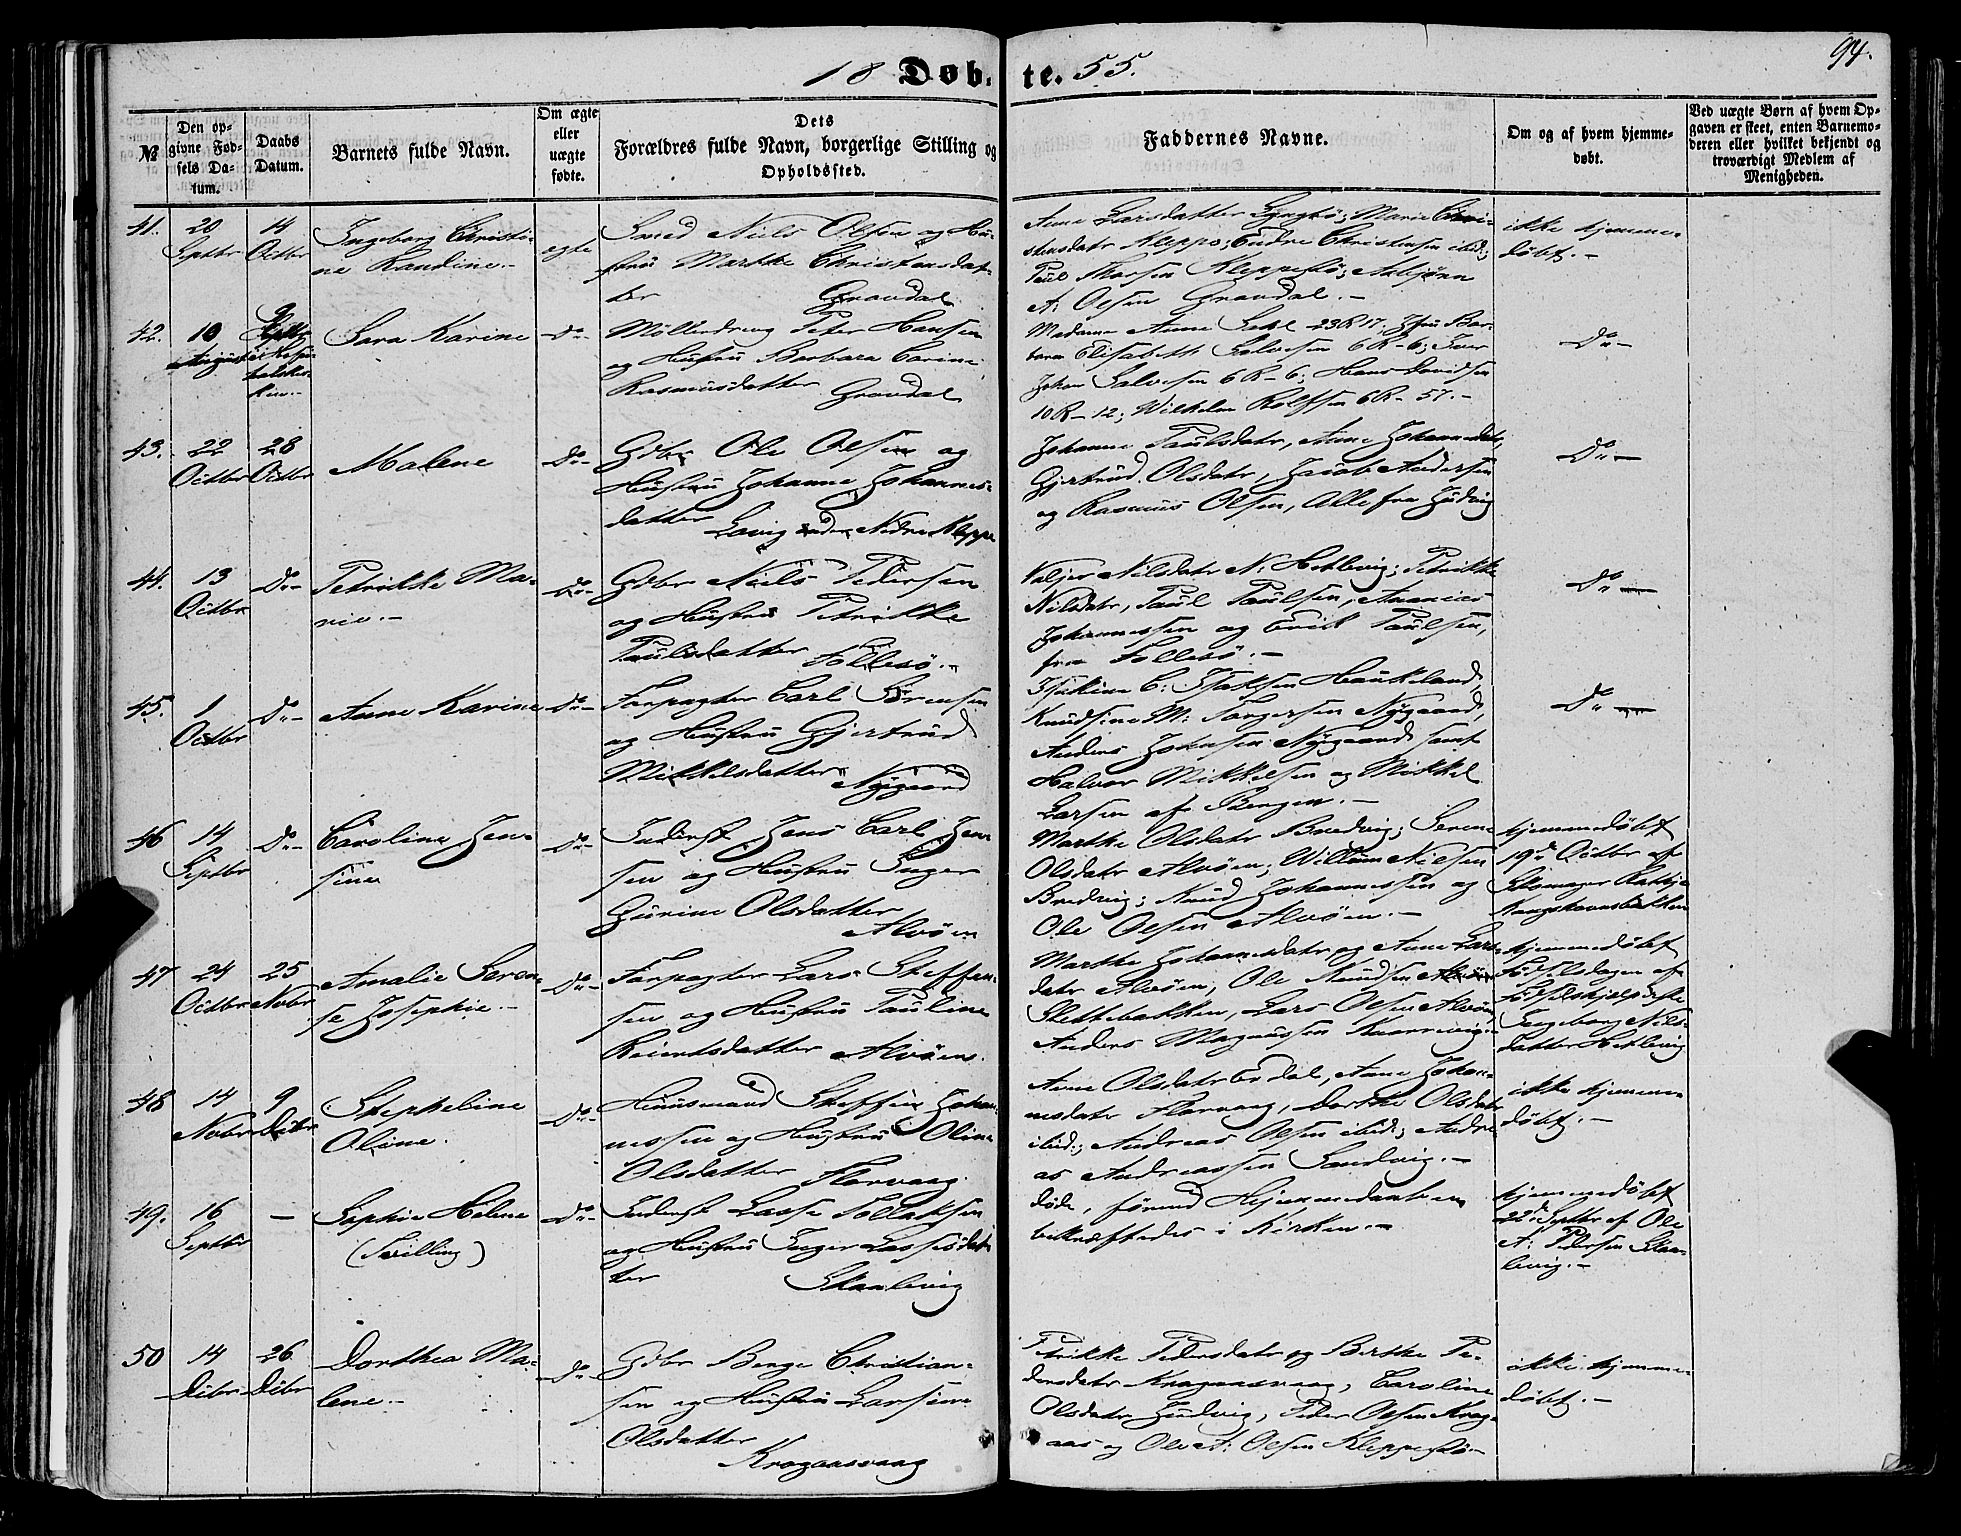 94.
18 Døb-te. 55.
№
Den opgivne Fødsels Datum.
Daabs Datum.
Barnets fulde Navn.
Om ægte eller uægte fødte.
Dets Forældres fulde Navn, borgerlige Stilling og Opholdssted.
Faddernes Navne.
Om og af hvem hjemmedøbt.
Ved uægte Børn af hvem Opgaven er skeet, enten Barnemoderen eller hvilket bekjendt og troværdigt Medlem af Menigheden.
41.
20 Septbr
14 Octbr
Ingeborg Christi-
ne Randine.-
egte
Smed Niels Olsen og Hu-
stru Marthe Christensdat-
ter Gravdal
Anne Larsdatter Lyngbø; Marie Chri-
stensdatr Kleppe; Endre Christensen ibid;
Paul Thorsen Kleppestø; Asbjørn
A: Olsen Gravdal.-
ikke hjemme-
døbt.-
42.
10 August
9 Septbr
Sara Karine
Do-
Møllerdreng Peter Hansen
og Hustru Barbara Carine
Rasmusdatter Gravdal
Madame Anne Dahl 23R 17; Jfru Bar-
bara Elisabeth Salvesen 6R-6; Iver
Johan Salvesen 6R-6; Hans Davidsen
10R-12; Wilhelm Rolfsen 6R-57.-
Do-
43.
22 Octbr
28 Octbr
Malene
Do-
Gdbr Ole Olsen og
Hustru Johanne Johannes-
datter Lavig under Nedre Kleppe
Johanne Paulsdatr, Anne Johannesdatr,
Gjertrud Olsdatr, Jacob Andersen
og Rasmus Olsen, Alle fra Judvig
Do-
44.
13 Octbr
Do-
Petrikke Ma-
rie.-
Do-
Gdbr Niels Pedersen
og Hustru Petrikke
Paulsdatter Follesø.-
Valjer Nilsdatr N: Hetlevig; Petrikke
Nilsdatr, Paul Paulsen, Ananias
Johannessen og Erik Paulsen,
fra Follesø.-
Do-
45.
1 Octbr
Do-
Anne Karine
Do-
Forpagter Carl Sørensen
og Hustru Gjertrud
Mikkelsdatter Nygaard
C: Isaksen Haukeland,
Knudsine M: Torgersen Nygaard,
Anders Johnsen Nygaard samt
Halvor Mikkelsen og Mikkel
Larsen af Bergen.-
Do-
46
14 Septbr
Do-
Caroline Jen-
sine
Do-
Inderst Jens Carl Jen-
sen og Hustru Inger
Jurine Olsdatter
Alvøen
Marthe Olsdatr Bredvig; Serene
Olsdatr Alvøen; Willum Nilsen
Bredvig; Knud Johannessen og
Ole Olsen Alvøen.-
hjemmedøbt
19de Octbr af
Skomager
47
24 Octbr
25 Novbr
Amalie Seren-
se Josephie.-
Do-
Forpagter Lars Steffen-
sen og Hustru Pauline
Reiertsdatter Alvøen.
Marthe Johannesdatr og Anne Lars-
datr Alvøen, Ole Knudsen
Slettebakken, Lars Olsen Alvøen
Anders Magnussen
hjemmedøbt
Fødselsdagen af
Fødselshjelperske
Ingeborg Nils-
datter Hetlevig
48
14 Novbr
9 Dcbr
Stepheline
Oline.
Do-
Huusmand Steffen Johan-
nessen og Hustru Oline
Olsdatter Florvaag
Anne Olsdatr Erdal, Anne Johan-
nesdatr Florvaag, Dorthe Olsdatr
ibid; Andreas Olsen ibid; Andre-
as Andreassen Sandvig.-
ikke hjemme-
døbt.-
49.
16 Septbr
-
Sophie Helene
(Tvilling)
Do-
Inderst Lasse Tollaksen
og Hustru Inger Lassesdat-
ter Skaalevig
døde, førend Hjemmedaaben
bekræftedes i Kirken.-
hjemmedøbt
22de Septbr af Ole
A: Pedersen Skaa-
levig.-
50
14 Dcbr
26 Dcbr
Dorthea Ma-
lene.-
Do-
Gdbr Berge Christian-
sen og Hustru Larsine
Olsdatter
Kragaasvaag
Petrikke Pedersdatr og Berthe Pe-
dersdatr Kragaasvaag, Caroline
Olsdatr Judvig, Peder Olsen Krag-
aas og Ole A: Olsen Kleppestø.-
ikke hjemme-
døbt.-